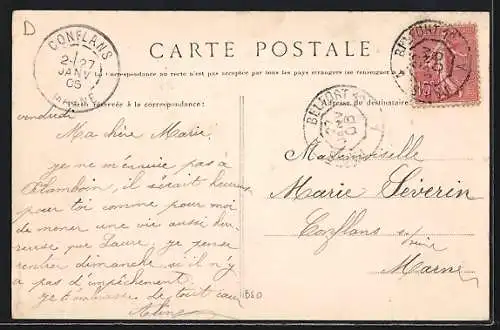 D
CONFLANS
2-/27
JANV
05
MARNE
CARTE POSTALE
La Correspondance au recto n'est pas acceptée par tous les pays étrangers (se renseigner
réservée à la correspondance
Adresse du destinataire
BELFORT
BELFORT
vendredi
Ma chère Marie
je ne m'ennuie pas à
il serait heureux
pour toi comme pour moi
de mener une vie aussi heu-
reuse que Laure, je pense
rentrer dimanche si il n'y
a pas d'empêchement
Je t'embrasse de tout cœur
Aline
Mademoiselle
Marie Séverin
Conflans s/Seine
Marne
1B50